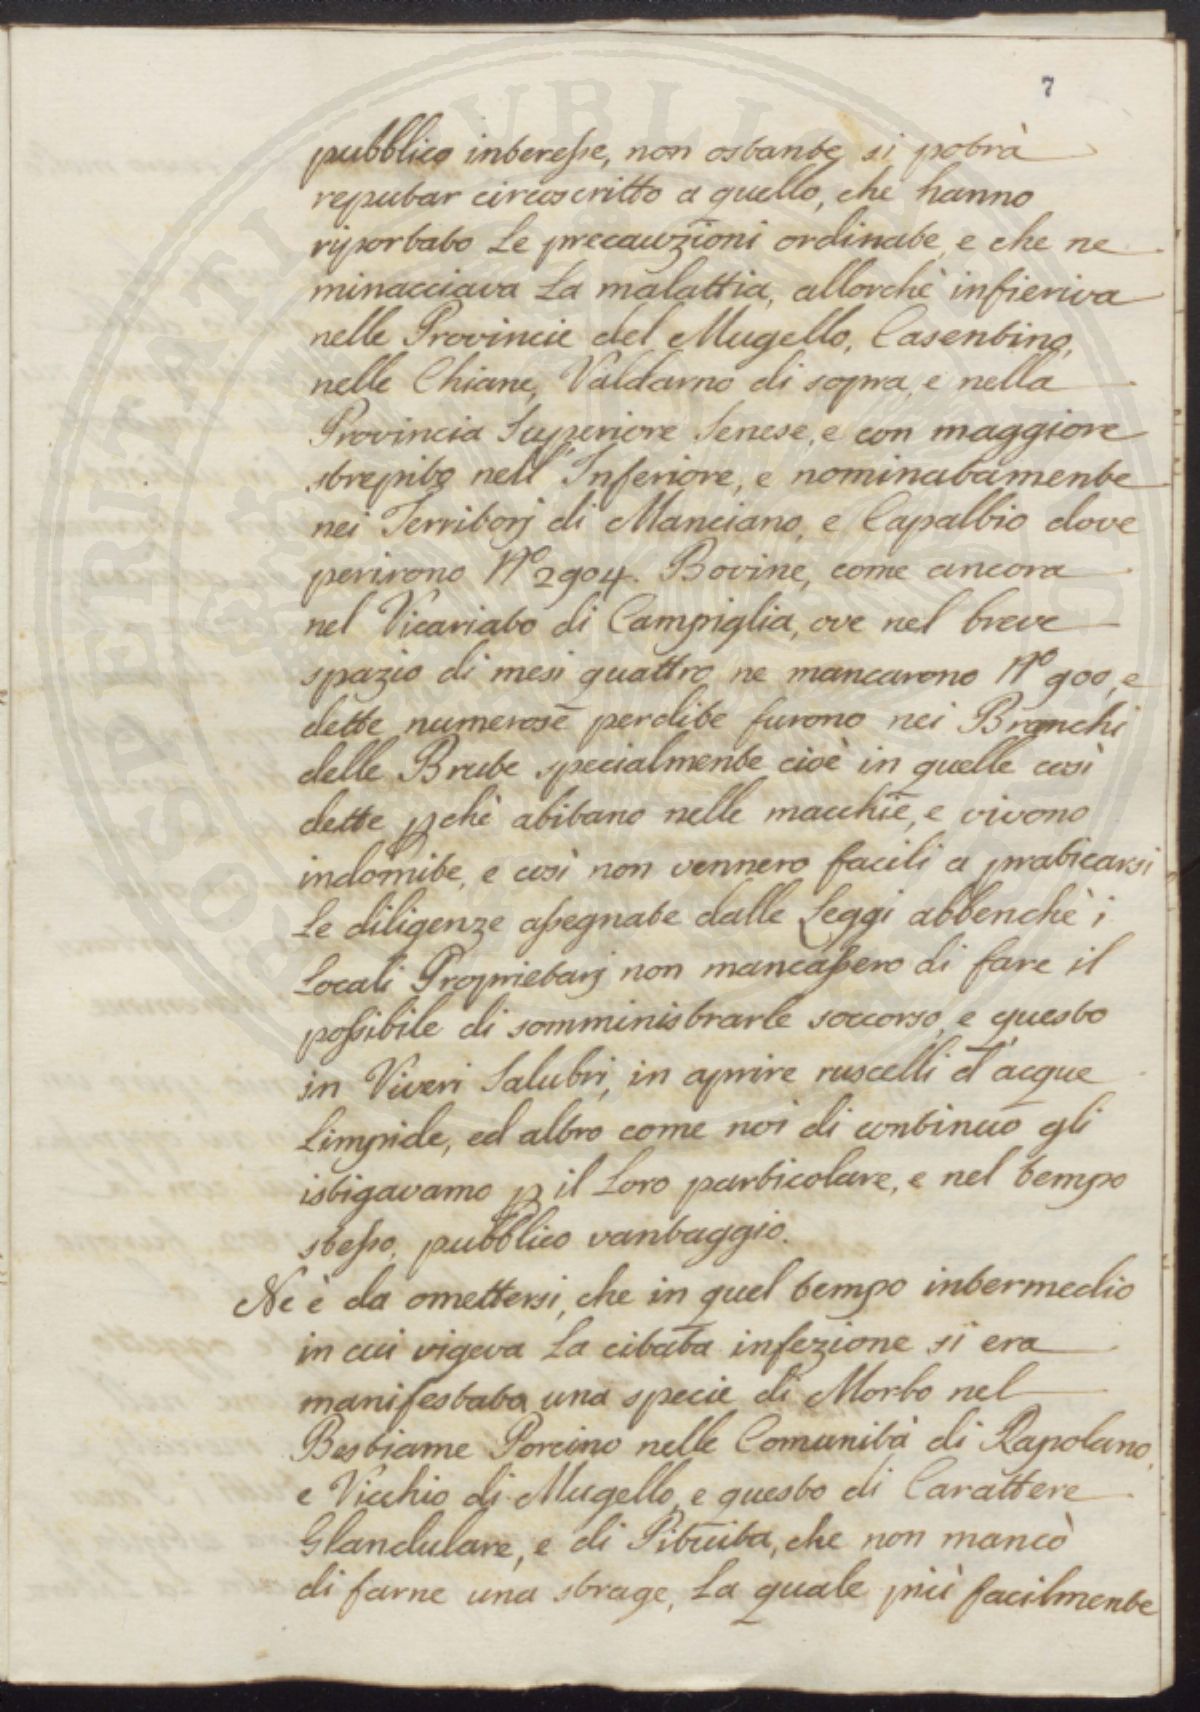 7
pubblico interesse, non ostante si potrà
reputar circoscritto a quello, che hanno
riportato le precauzioni ordinate, e che ne
minacciava la malattia, allorchè infieriva
nelle Provincie del Mugello, Casentino,
nelle Chiane, Valdarno di sopra, e nella
Provincia Superiore Senese, e con maggiore
strepito nell'Inferiore, e nominatamente
nei Territorj di Manciano, e Capalbio dove
perirono N.º 2904. Bovine, come ancora
nel Vicariato di Campiglia, ove nel breve
spazio di mesi quattro ne mancarono N.º 900, e
dette numerose perdite furono nei Branchi
delle Brute specialmente cioè in quelle così
dette pchè abitano nelle macchie, e vivono
indomite, e così non vennero facili a praticarsi
le diligenze assegnate dalle Leggi abbenchè i
Locali Proprietarj non mancassero di fare il
possibile di somministrarle soccorso, e questo
in Viveri Salubri, in aprire ruscelli d'acque
limpide, ed altro come noi di continuo gli
istigavamo p il loro particolare, e nel tempo
stesso, pubblico vantaggio.
Ne è da omettersi, che in quel tempo intermedio
in cui vigeva la citata infezione si era
manifestato una specie di Morbo nel
Bestiame Porcino nelle Comunità di Rapolano,
e Vicchio di Mugello, e questo di Carattere
Glandulare, e di Pituita, che non mancò
di farne una strage, la quale più facilmente